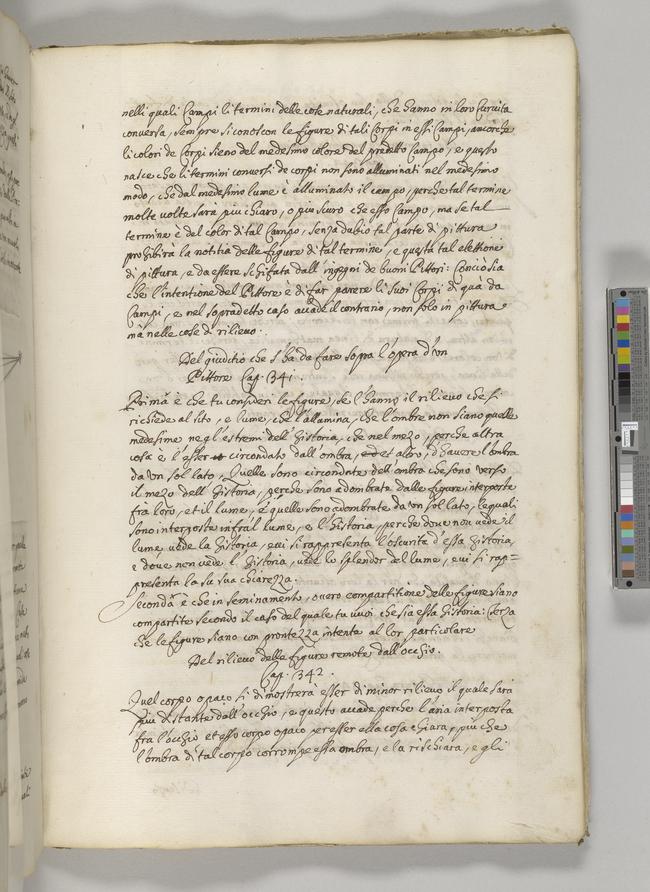 nelli quali Campi li termini delle cose naturali, che hanno in loro Curvità
conversa, sempre si conoscon le figure di tali Corpi in essi Campi, ancorche
li colori de Corpi sieno del medesimo colore del predetto Campo, e questo
nasce che li termini conversi de corpi non sono alluminati nel medesimo
modo, che dal medesimo lume è alluminato il campo, perche tal termine
molte volte sara più chiaro, o più scuro che esso Campo, ma se tal
termine è del color di tal Campo, senza dubio tal parte di pittura
prohibirà la notitia delle figure di tal termine, e questa tal elettione
di pittura, e da essere schifata dall' ingegni de buoni Pittori: Conciosia
che l'intentione del Pittore è di far parere li suoi Corpi di qua da
Campi, e nel sopradetto caso accade il contrario, non solo in pittura
ma nelle cose di rilievo.
Del giuditio che s'ha da fare sopra l'opera d'un
Pittore Cap. 341.
Prima è che tu consideri le figure, se l'hanno il rilievo che si
richiede al sito, e lume, che l'allumina, che l'ombre non siano quelle
medesime negl'estremi dell' historia, che nel mezo, perche altra
cosa è l'esser circondato dall' ombra, et altro, d'havere l'ombra
da un sol lato, Quelle sono circondate dell' ombra che sono verso
il mezo dell' Historia, perche sono adombrate dalle figure interposte
frà loro, et il lume, e quelle sono adombrate da un sol lato, lequali
sono interposte infra'l lume, e l'historia, perche dove non vede il
lume, vede la historia, e vi si rappresenta l'oscurità d'essa historia,
e dove non vede l'historia, vede lo splendor del lume, e vi si rap=
presenta la su sua chiarezza.
Seconda è che in seminamento, overo compartitione delle figure siano
compartite secondo il caso del quale tu vuoi che sia essa historia: Terza
che le figure siano con prontezza intente al lor particolare
Del rilievo delle figure remote dall'occhio.
Cap. 342.
Quel corpo opaco si dimostrerà esser di minor rilievo il quale sarà
più distante dall'occhio, e questo accade perche l'aria interposta
fra l'occhio et esso corpo opaco per esser ella cosa chiara, più che
l'ombra di tal corpo corrompe essa ombra, e la rischiara, e gli